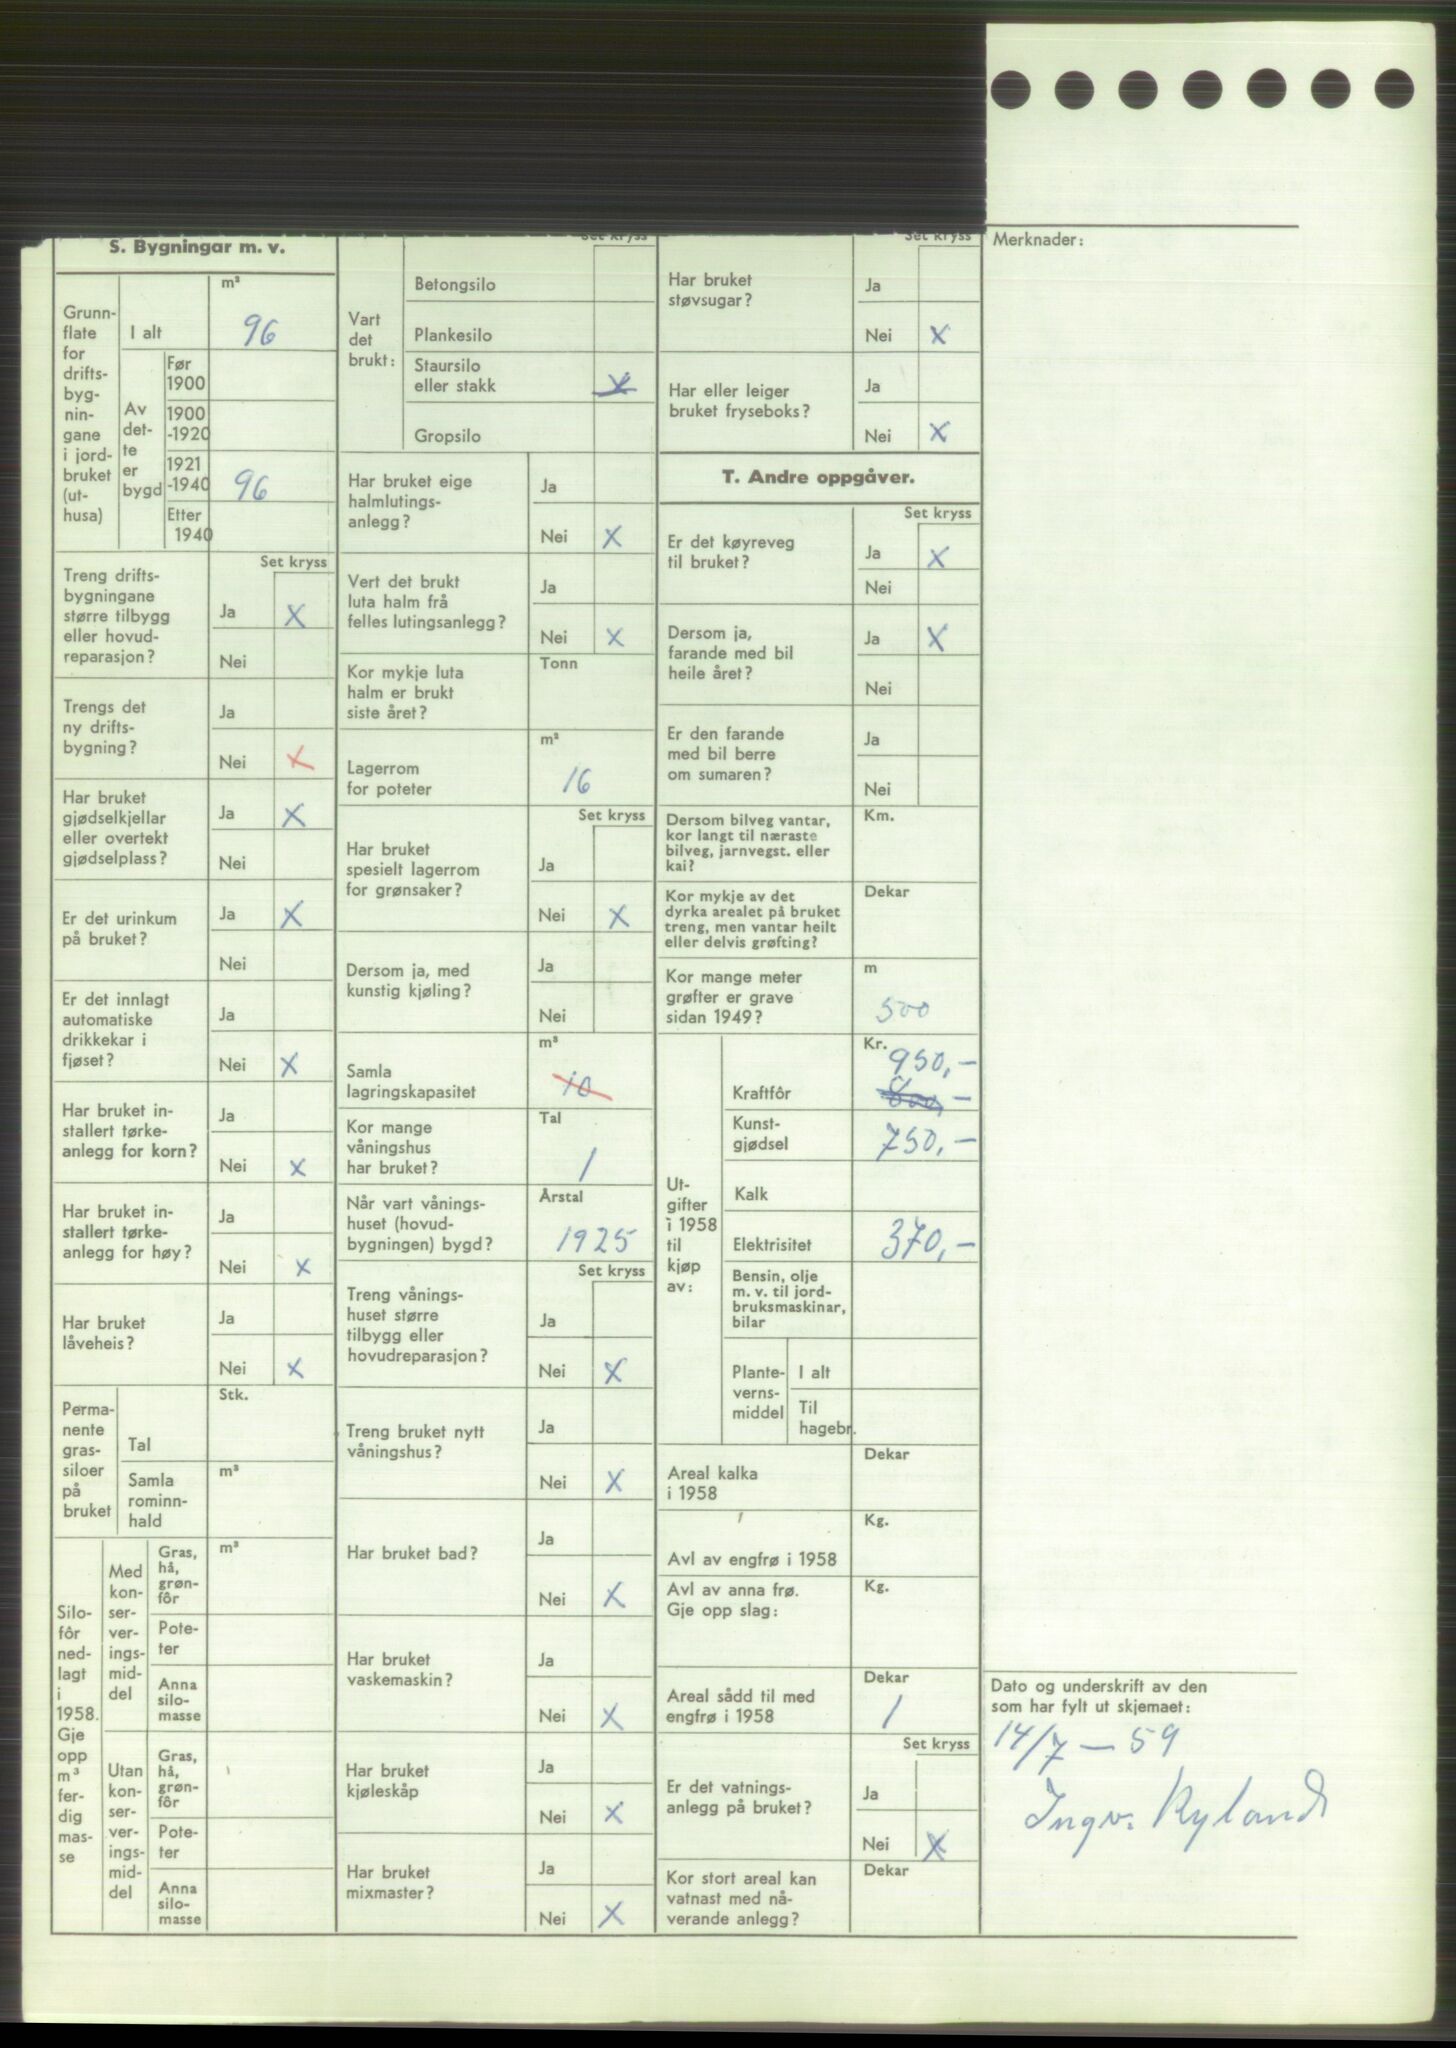 S. Bygningar m. v.
Grunn-
flate
for
drifts-
byg-
nin-
gane
i jord-
bruket
(ut-
husa)
m²
I alt 96
Av
det-
te
er
bygd
Før
1900
1900
-1920
1921
-1940 96
Etter
1940
Set kryss
Treng drifts-
bygningane
større tilbygg
eller hovud-
reparasjon?
Ja X
Nei
Trengs det
ny drifts-
bygning?
Ja
Nei X
Har bruket
gjødselkjellar
eller overtekt
gjødselplass?
Ja X
Nei
Er det urinkum
på bruket?
Ja X
Nei
Er det innlagt
automatiske
drikkekar i
fjøset?
Ja
Nei X
Har bruket in-
stallert tørke-
anlegg for korn?
Ja
Nei X
Har bruket in-
stallert tørke-
anlegg for høy?
Ja
Nei X
Har bruket
låveheis?
Ja
Nei X
Perma-
nente
gras-
siloer
på
bruket
Stk.
Tal
Samla
rominn-
hald
m³
Silo-
fôr
ned-
lagt
i
1958.
Gje
opp
m³
fer-
dig
mas-
se
Med
kon-
ser-
ver-
ings-
mid-
del
Gras,
hå,
grøn-
fôr
m³
Pote-
ter
Anna
silo-
masse
Utan
kon-
ser-
ver-
ings-
mid-
del
Gras,
hå,
grøn-
fôr
Pote-
ter
Anna
silo-
masse
Set kryss
Vart
det
brukt:
Betongsilo
Plankesilo
Staursilo
eller stakk X
Gropsilo
Har bruket eige
halmlutings-
anlegg?
Ja
Nei X
Vert det brukt
luta halm frå
felles lutingsanlegg?
Ja
Nei X
Kor mykje luta
halm er brukt
siste året?
Tonn
Lagerrom
for poteter
m³
16
Set kryss
Har bruket
spesielt lagerrom
for grønsaker?
Ja
Nei X
Dersom ja, med
kunstig kjøling?
Ja
Nei
Samla
lagringskapasitet
m³
10
Kor mange
våningshus
har bruket?
Tal
1
Når vart vånings-
huset (hovud-
bygningen) bygd?
Årstal
1925
Set kryss
Treng vånings-
huset større
tilbygg eller
hovudreparasjon?
Ja
Nei X
Treng bruket nytt
våningshus?
Ja
Nei X
Har bruket bad?
Ja
Nei X
Har bruket
vaskemaskin?
Ja
Nei X
Har bruket
kjøleskåp
Ja
Nei X
Har bruket
mixmaster?
Ja
Nei X
Set kryss
Har bruket
støvsugar?
Ja
Nei X
Har eller leiger
bruket fryseboks?
Ja
Nei X
T. Andre oppgåver.
Set kryss
Er det køyreveg
til bruket?
Ja X
Nei
Dersom ja,
farande med bil
heile året?
Ja X
Nei
Er den farande
med bil berre
om sumaren?
Ja
Nei
Dersom bilveg vantar,
kor langt til næraste
bilveg, jarnvegst. eller
kai?
Km.
Kor mykje av det
dyrka arealet på bruket
treng, men vantar heilt
eller delvis grøfting?
Dekar
Kor mange meter
grøfter er grave
sidan 1949?
m
500
Ut-
gifter
i 1958
til
kjøp
av:
Kr.
950,-
Kraftfôr 800,-
Kunst-
gjødsel 750,-
Kalk
Elektrisitet 370,-
Bensin, olje
m. v. til jord-
bruksmaskinar,
bilar
Plante-
verns-
middel
I alt
Til
hagebr.
Areal kalka
i 1958
Dekar
Avl av engfrø i 1958
Kg.
Avl av anna frø.
Gje opp slag:
Kg.
Areal sådd til med
engfrø i 1958
Dekar
1
Set kryss
Er det vatnings-
anlegg på bruket?
Ja
Nei X
Kor stort areal kan
vatnast med nå-
verande anlegg?
Dekar
Merknader:
Dato og underskrift av den
som har fylt ut skjemaet:
14/7 - 59
Ingv. Ryland